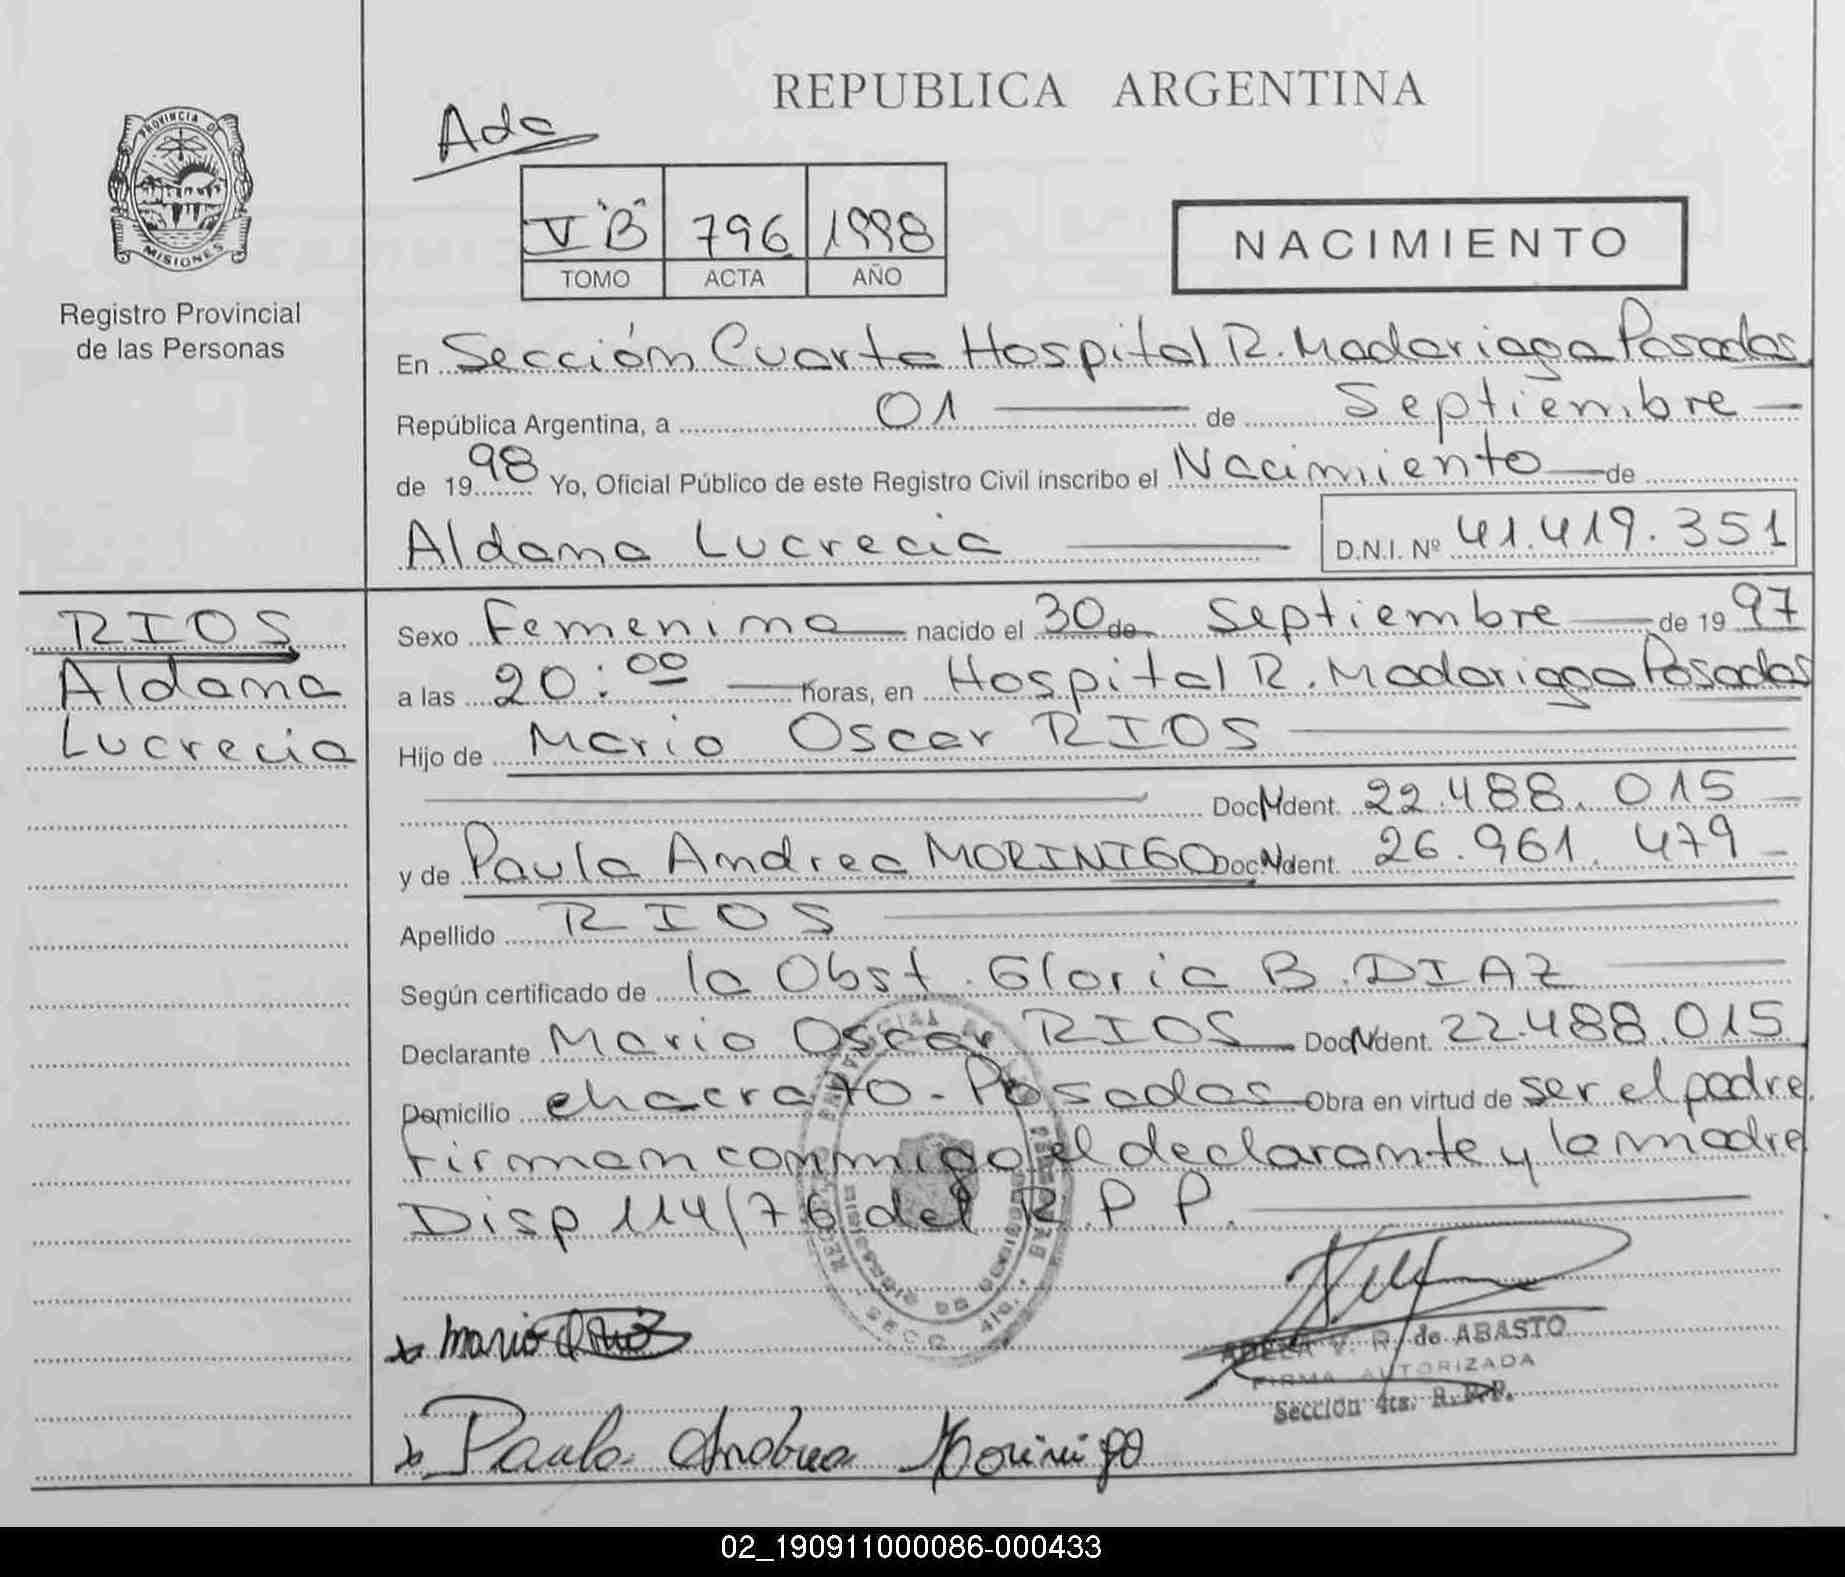 REPUBLICA ARGENTINA
PROVINCIA DE
MISIONES
Registro Provincial
de las Personas
V "B" 796 1998
TOMO ACTA AÑO
NACIMIENTO
En Sección Cuarta Hospital R. Madariaga Posadas
República Argentina, a 01 de Septiembre
de 1998 Yo, Oficial Público de este Registro Civil inscribo el Nacimiento de
Aldana Lucrecia D.N.I. Nº 41.419.351
RIOS
Aldana
Lucrecia
Sexo Femenino nacido el 30 de Septiembre de 1997
a las 20:00 horas, en Hospital R. Madariaga Posadas
Hijo de Mario Oscar RIOS
Doc. Ident. 22.488.015
y de Paula Andrea MORINIGO Doc. Ident. 26.961.479
Apellido RIOS
Según certificado de la Obst. Gloria B. DIAZ
Declarante Mario Oscar RIOS Doc. Ident. 22.488.015
Domicilio chacra 70 - Posadas Obra en virtud de ser el padre.
Firman conmigo el declarante y la madre
Disp 114/76 del R.P.P.
x Mario
ADELA V. R. de ABASTO
FIRMA AUTORIZADA
Sección 4ta. R.P.P.
x Paula Andrea Morinigo
02_190911000086-000433